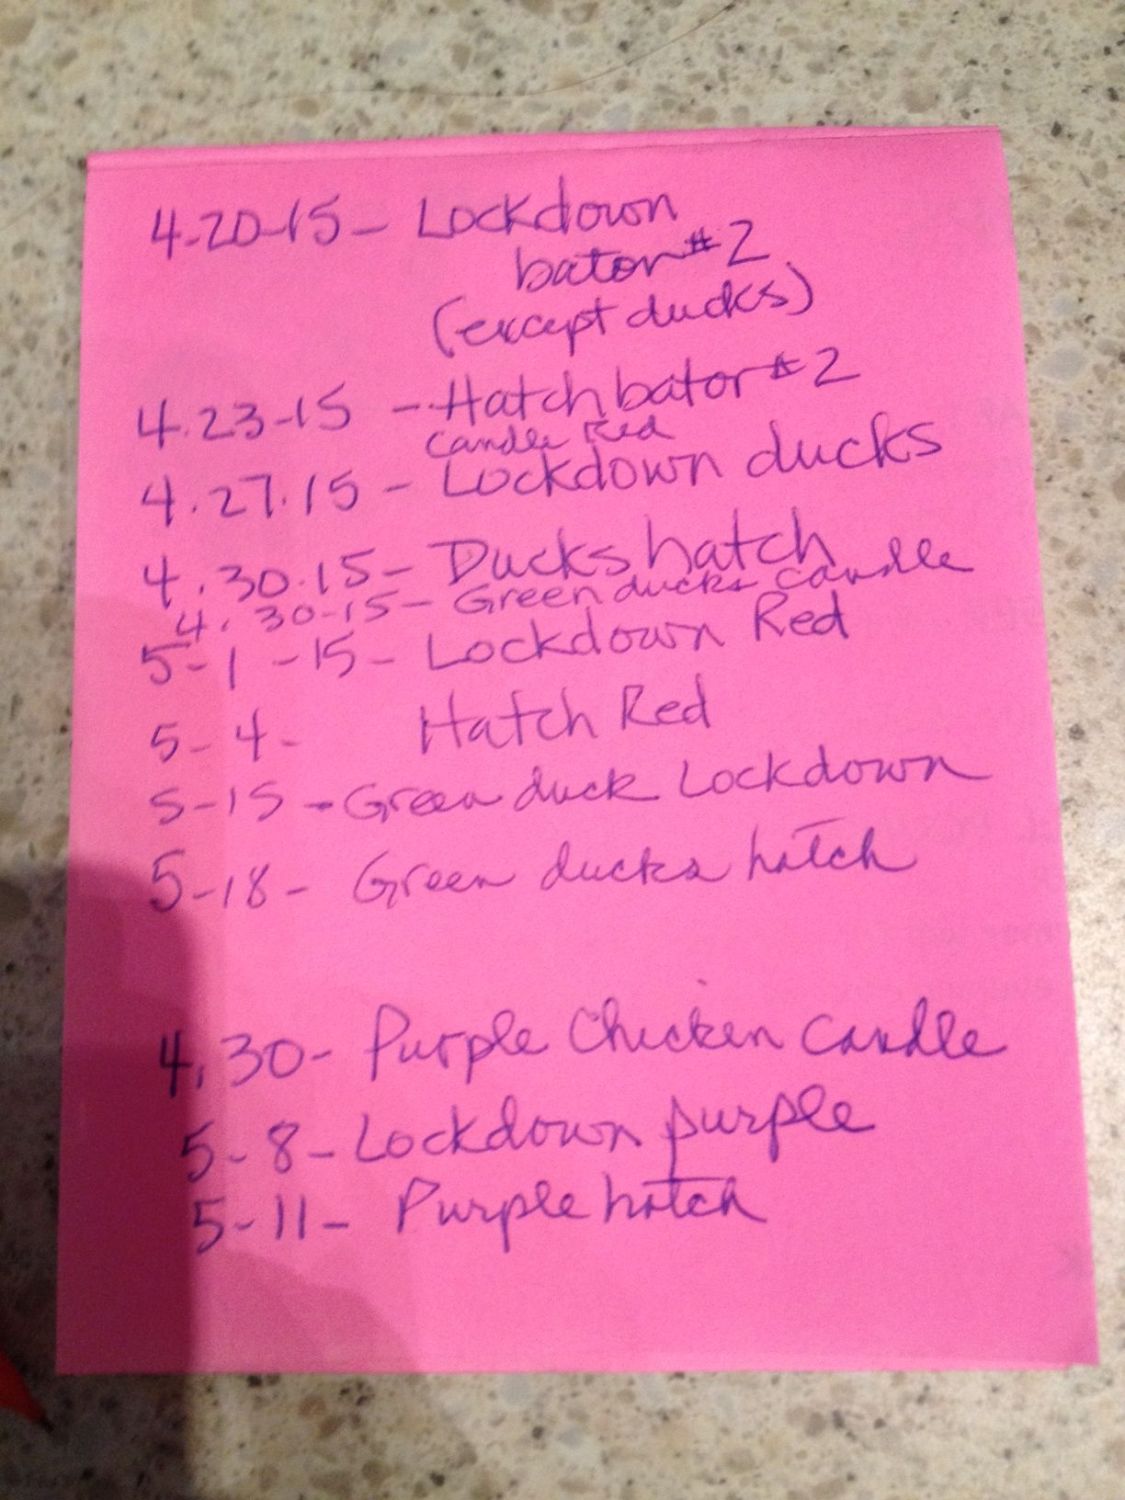 4-20-15- Lockdown
bator #2
(except ducks)
4.23-15 - Hatch bator #2
Candle Red
4.27.15 - Lockdown ducks
4.30.15- Ducks hatch
4.30-15- Green ducks candle
5-1-15- Lockdown Red
5-4- Hatch Red
5-15 - Green duck Lockdown
5-18- Green ducks hatch
4.30- Purple Chicken Candle
5-8- Lockdown purple
5-11- Purple hatch